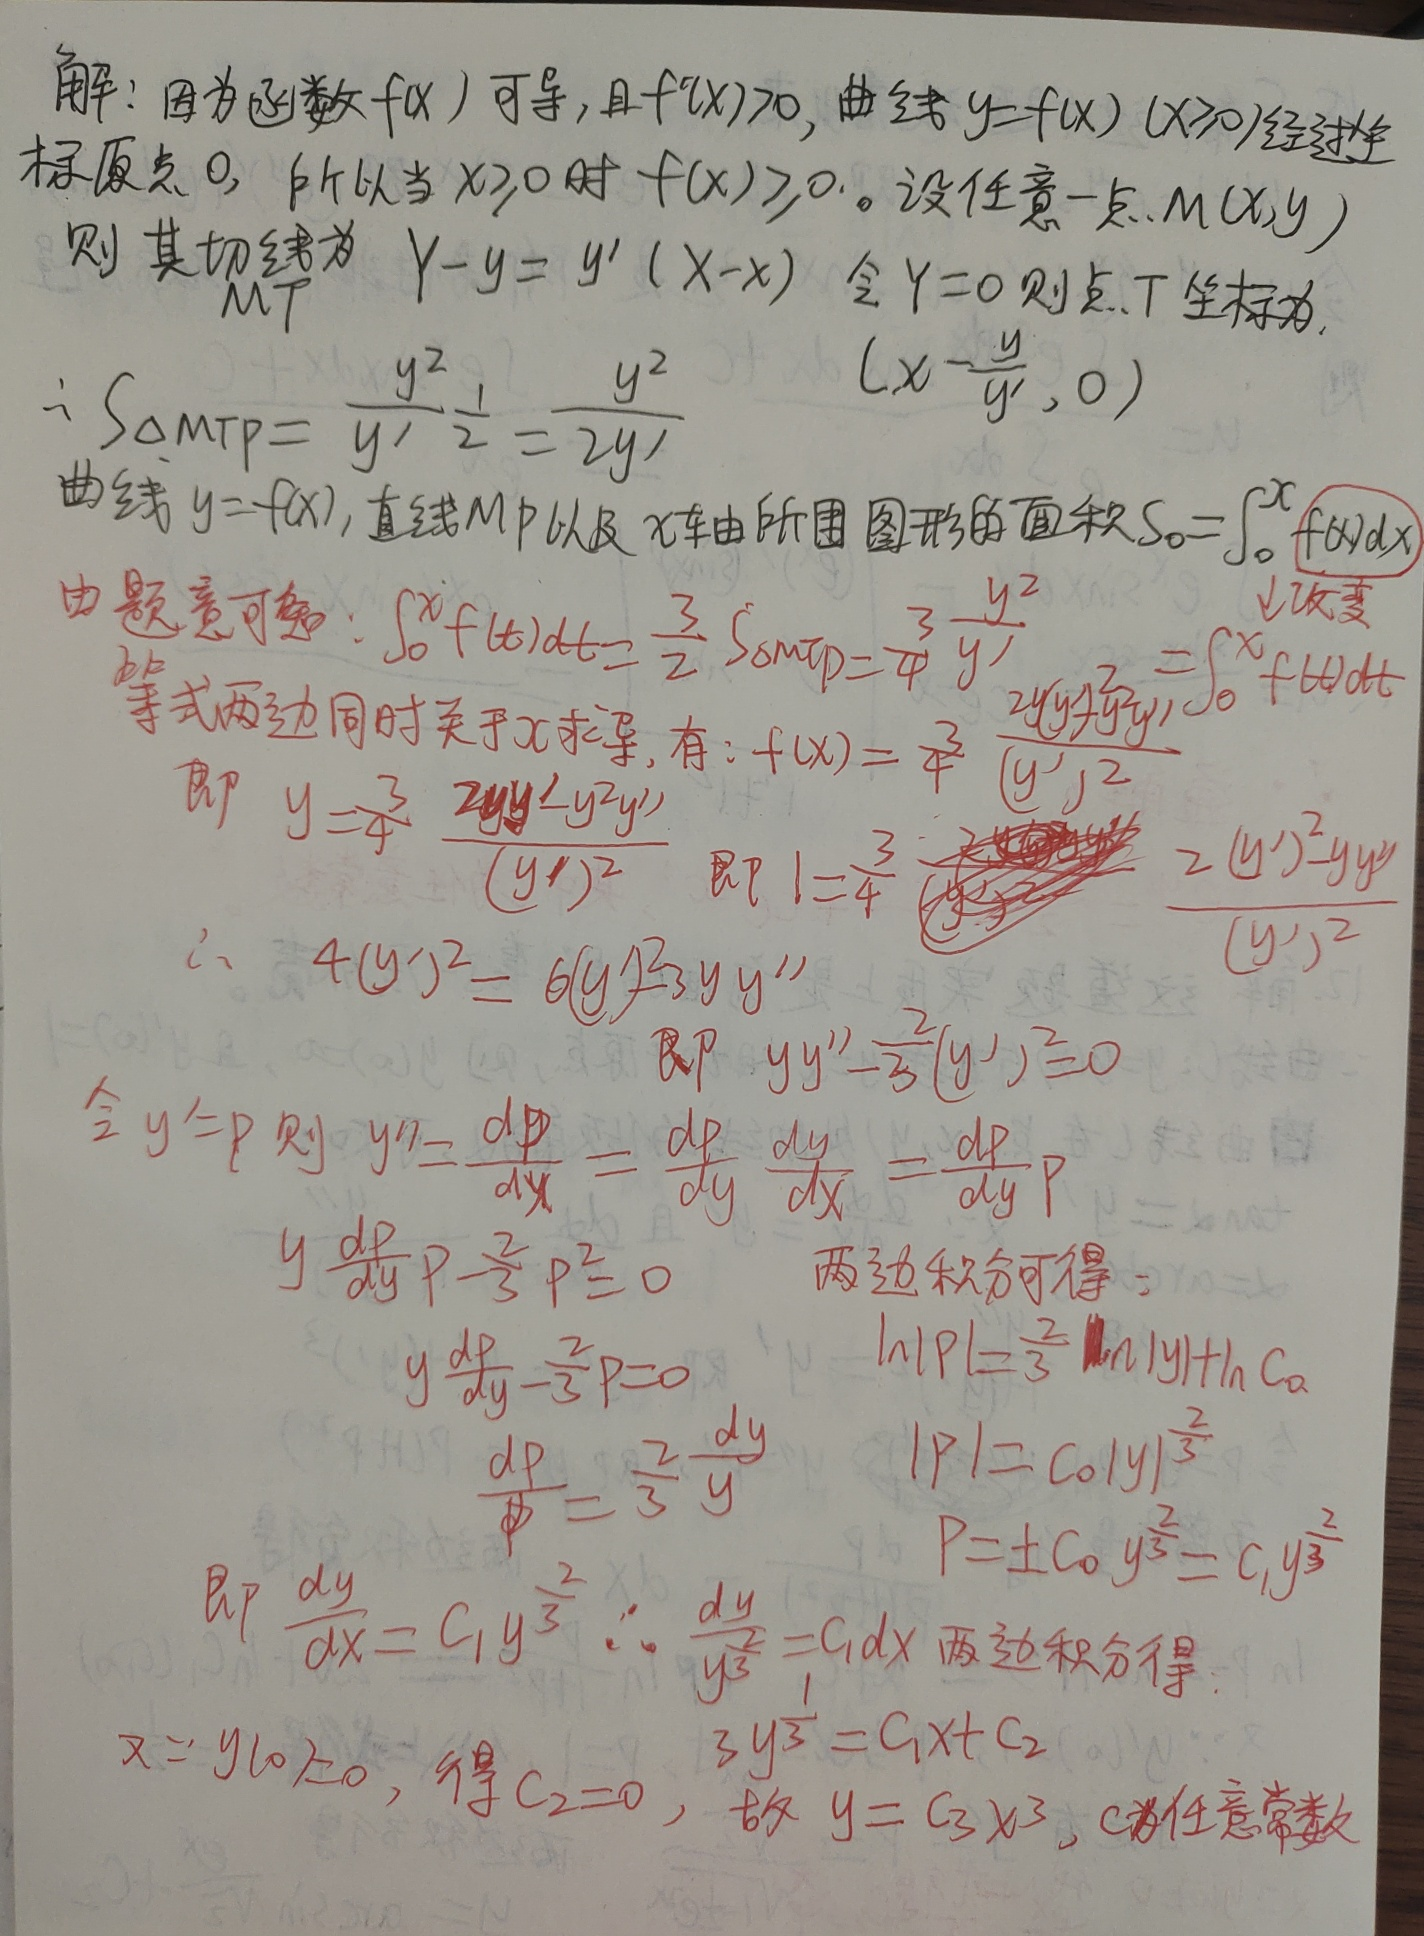 解：因为函数f(x)可导，且f'(x)>0，曲线y=f(x)（x≥0）经过坐
标原点O，所以当x≥0时 f(x)≥0。设任意一点M(x,y)
则其切线MT为 Y-y=y'(X-x) 令Y=0则点T坐标为
(x-y/y', 0)
∴ S△MTP = y²/y' · 1/2 = y²/2y'
曲线y=f(x)，直线MP以及x轴由所围图形的面积S₀=∫₀ˣ f(x)dx
↓改变
=∫₀ˣ f(t)dt
由题意可知：∫₀ˣ f(t)dt = 3/2 S△MTP = 3/4 y²/y'
等式两边同时关于x求导，有：f(x) = 3/4 (2y(y')²-y²y'')/(y')²
即 y = 3/4 (2yy'-y²y'')/(y')² 即 1 = 3/4 (2(y')²-yy'')/(y')²
∴ 4(y')² = 6(y')²-3yy''
即 yy''-2/3(y')²=0
令y'=p则y''=dp/dx = dp/dy dy/dx = dp/dy p
y dp/dy p - 2/3 p² = 0
y dp/dy - 2/3 p = 0
dp/p = 2/3 dy/y
两边积分可得：
ln|p| = 2/3 ln|y|+ln C₀
|p| = C₀|y|^(2/3)
p = ±C₀ y^(2/3) = C₁y^(2/3)
即 dy/dx = C₁y^(2/3) ∴ dy/y^(2/3) = C₁dx 两边积分得：
3y^(1/3) = C₁x+C₂
∵ y(0)=0，得C₂=0，故 y=C₃x³，C为任意常数